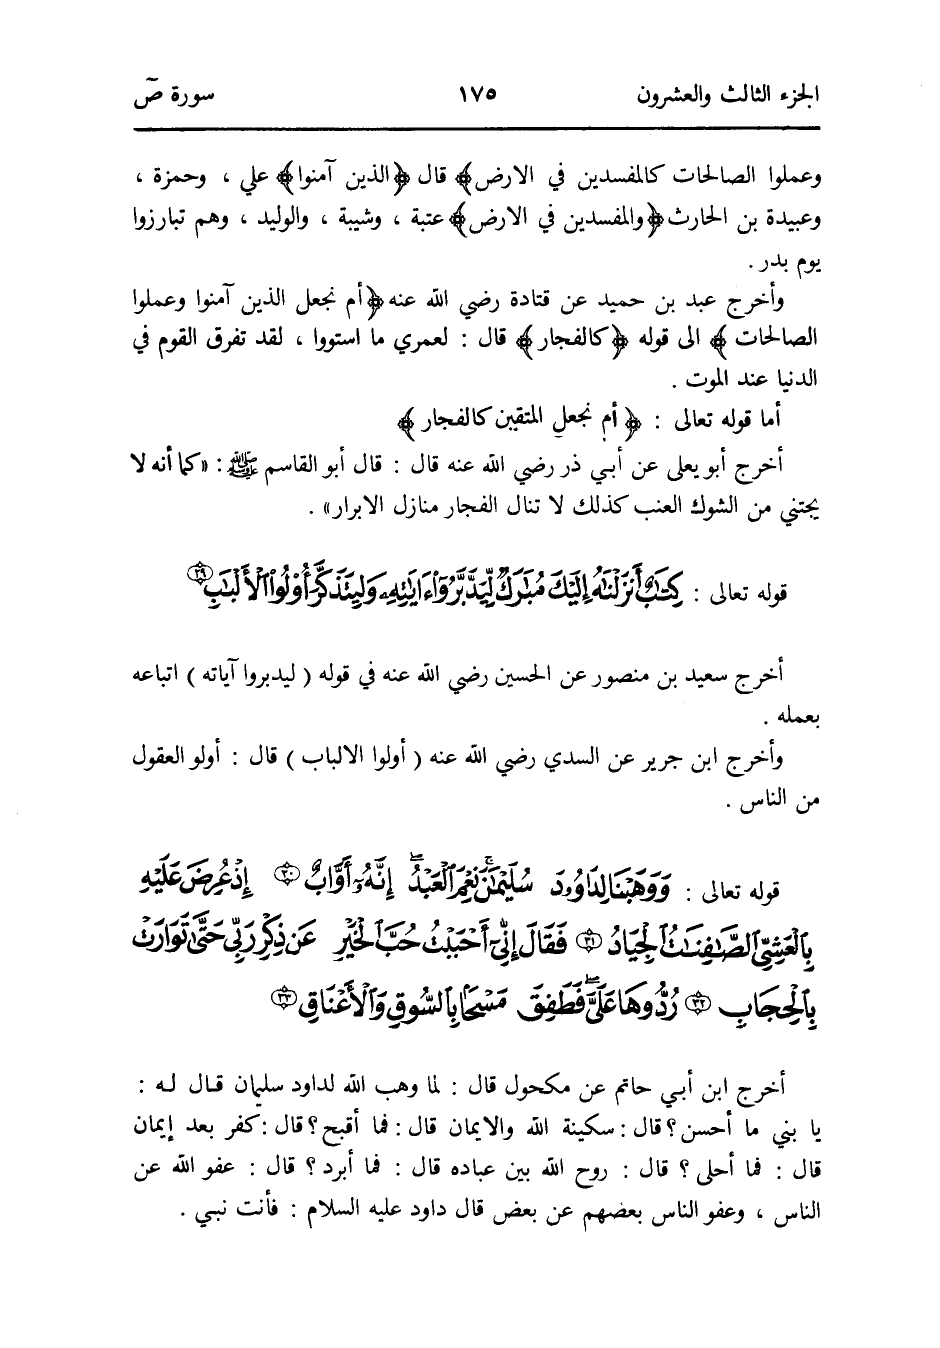 الجزء الثالث والعشرون ١٧٥ سورة صٓ
وعملوا الصالحات كالمفسدين في الارض﴾ قال ﴿الذين آمنوا﴾ علي ، وحمزة ،
وعبيدة بن الحارث ﴿والمفسدين في الارض﴾ عتبة ، وشيبة ، والوليد ، وهم تبارزوا
يوم بدر .
وأخرج عبد بن حميد عن قتادة رضي الله عنه ﴿أم نجعل الذين آمنوا وعملوا
الصالحات ﴾ الى قوله ﴿كالفجار﴾ قال : لعمري ما استووا ، لقد تفرق القوم في
الدنيا عند الموت .
أما قوله تعالى : ﴿ أم نجعل المتقين كالفجار ﴾
أخرج أبو يعلى عن أبي ذر رضي الله عنه قال : قال أبو القاسم ﷺ : «كما أنه لا
يجتني من الشوك العنب كذلك لا تنال الفجار منازل الابرار» .
قوله تعالى : كِتَٰبٌ أَنزَلْنَٰهُ إِلَيْكَ مُبَٰرَكٌ لِّيَدَّبَّرُوٓا۟ ءَايَٰتِهِۦ وَلِيَتَذَكَّرَ أُو۟لُوا۟ ٱلْأَلْبَٰبِ ۝٢٩
أخرج سعيد بن منصور عن الحسين رضي الله عنه في قوله ( ليدبروا آياته ) اتباعه
بعمله .
وأخرج ابن جرير عن السدي رضي الله عنه ( أولوا الالباب ) قال : أولو العقول
من الناس .
قوله تعالى : وَوَهَبْنَا لِدَاوُۥدَ سُلَيْمَٰنَ ۚ نِعْمَ ٱلْعَبْدُ ۖ إِنَّهُۥٓ أَوَّابٌ ۝٣٠ إِذْ عُرِضَ عَلَيْهِ
بِٱلْعَشِىِّ ٱلصَّٰفِنَٰتُ ٱلْجِيَادُ ۝٣١ فَقَالَ إِنِّىٓ أَحْبَبْتُ حُبَّ ٱلْخَيْرِ عَن ذِكْرِ رَبِّى حَتَّىٰ تَوَارَتْ
بِٱلْحِجَابِ ۝٣٢ رُدُّوهَا عَلَىَّ ۖ فَطَفِقَ مَسْحًۢا بِٱلسُّوقِ وَٱلْأَعْنَاقِ ۝٣٣
أخرج ابن أبي حاتم عن مكحول قال : لما وهب الله لداود سليمان قال له :
يا بني ما أحسن ؟ قال : سكينة الله والايمان قال : فما أقبح ؟ قال : كفر بعد إيمان
قال : فما أحلى ؟ قال : روح الله بين عباده قال : فما أبرد ؟ قال : عفو الله عن
الناس ، وعفو الناس بعضهم عن بعض قال داود عليه السلام : فأنت نبي .